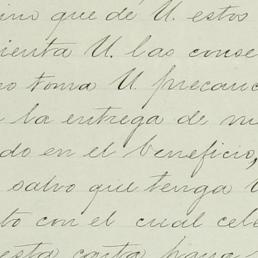 ino que dé U. estos
ienta U. las conse
no toma U. precauc
la entrega de
do en el beneficio,
salvo que tenga
to con el cual cel
esta carta para